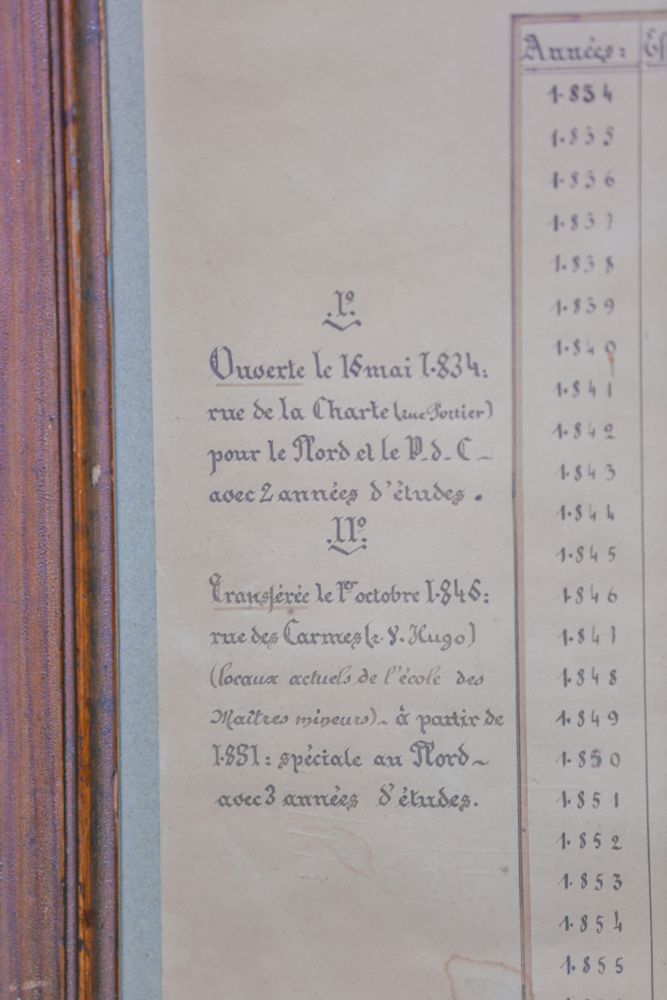 .Iº.
Ouverte le 15 mai 1.834:
rue de la Charte (rue Fortier)
pour le Nord et le P.d.C_
avec 2 années d'études.
.IIº.
Transférée le 1er octobre 1.845:
rue des Carmes (r. V. Hugo)
(locaux actuels de l'école des
Maîtres mineurs)_ à partir de
1.851: spéciale au Nord_
avec 3 années d'études.
Années:
1.834
1.835
1.836
1.837
1.838
1.839
1.840
1.841
1.842
1.843
1.844
1.845
1.846
1.847
1.848
1.849
1.850
1.851
1.852
1.853
1.854
1.855